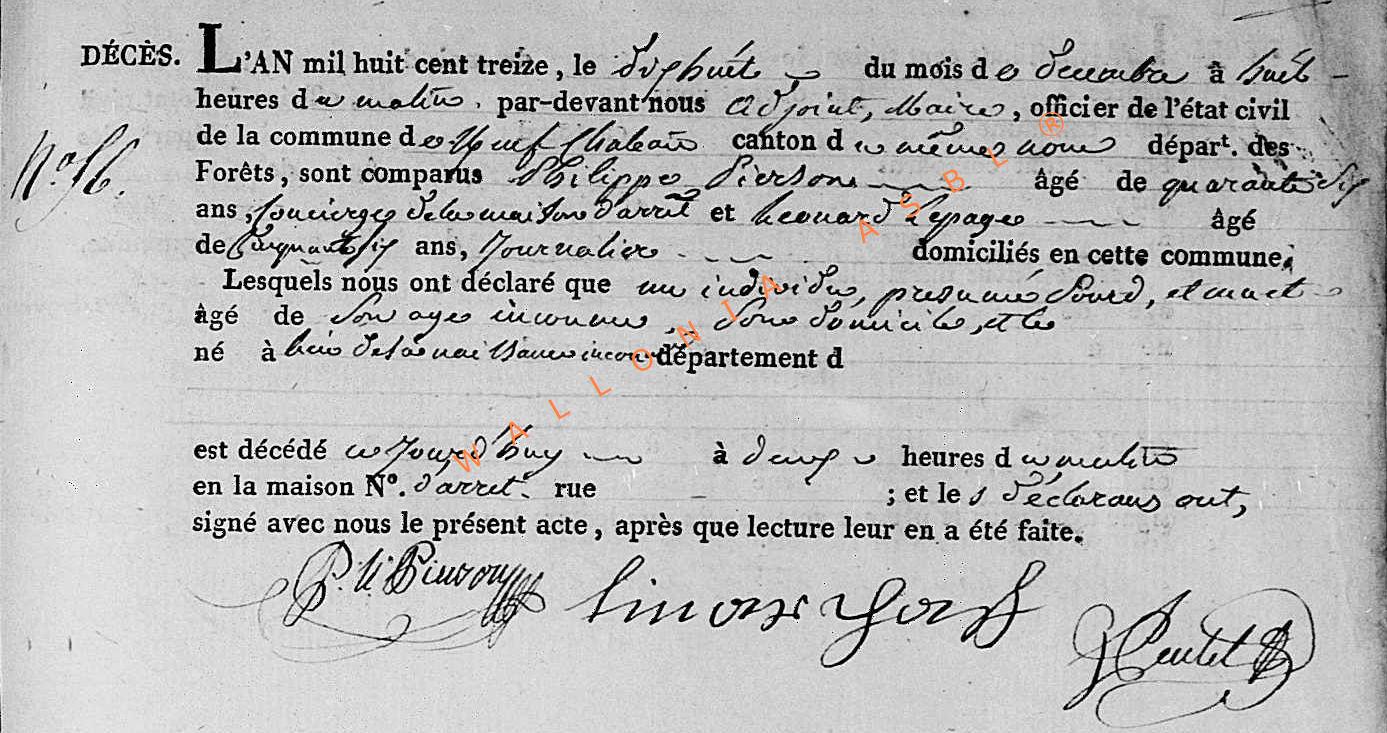 DÉCÈS. L'AN mil huit cent treize, le dixhuit du mois de Decembre à huit
heures du matin, par-devant nous adjoint, Maire, officier de l'état civil
de la commune de Neufchateau canton du même nom départ. des
N.° 56.
Forêts, sont comparus Philippe Pierson âgé de quarante six
ans, Concierge de la maison d'arrêt et Leonard Lepage âgé
de Cinquante six ans, Journalier domiciliés en cette commune.
Lesquels nous ont déclaré que un individu, presumé Sourd, et muet
âgé de Son age inconnu, Sans domicile, et le
né à lieu de sa naissance inconnu département d
est décédé ce jourd'huy à deux heures du matin
en la maison N°. d'arret. rue ; et les déclarans ont,
signé avec nous le présent acte, après que lecture leur en a été faite.
WALLONIA ASBL ®